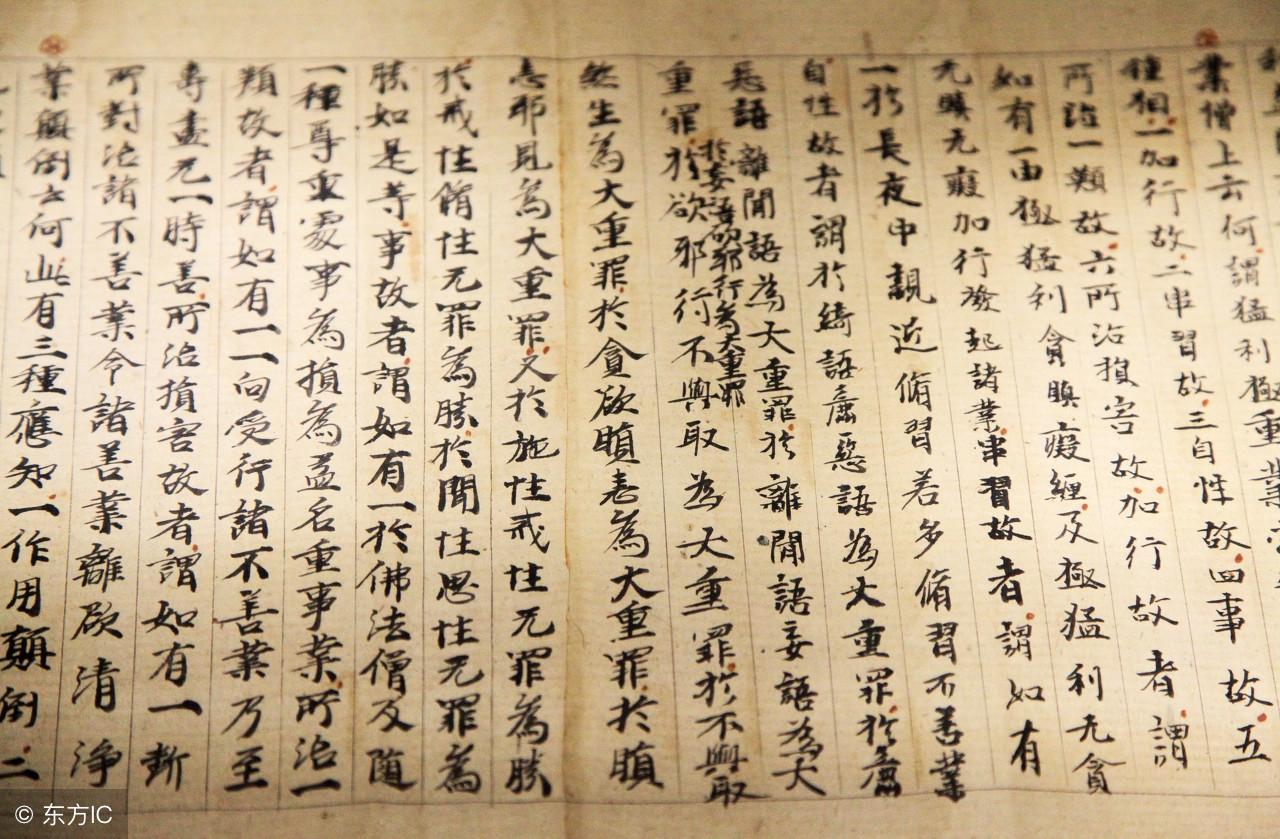 業僧上云何謂猛利極重業
種相一加行故二串習故三自性故四事故五
所治一類故六所治損害故加行故者謂
如有一由極猛利貪瞋癡纏及極猛利无貪
无瞋无癡加行發起諸業串習故者謂如有
一於長夜中親近脩習若多脩習不善業
自性故者謂於綺語麁惡語為大重罪於麁
惡語離間語為大重罪於離間語妄語為大
於妄語欲邪行為大重罪
重罪於欲邪行不與取為大重罪於不與取
煞生為大重罪於貪欲瞋恚為大重罪於瞋
恚邪見為大重罪又於施性戒性无罪為勝
於戒性脩性无罪為勝於聞性思性无罪為
勝如是等事故者謂如有一於佛法僧及隨
一種尊重處事為損為益名重事業所治一
類故者謂如有一一向受行諸不善業乃至
壽盡无一時善所治損害故者謂如有一斷
所對治諸不善業令諸善業離欲清淨
業顛倒云何此有三種應知一作用顛倒二
© 东方IC